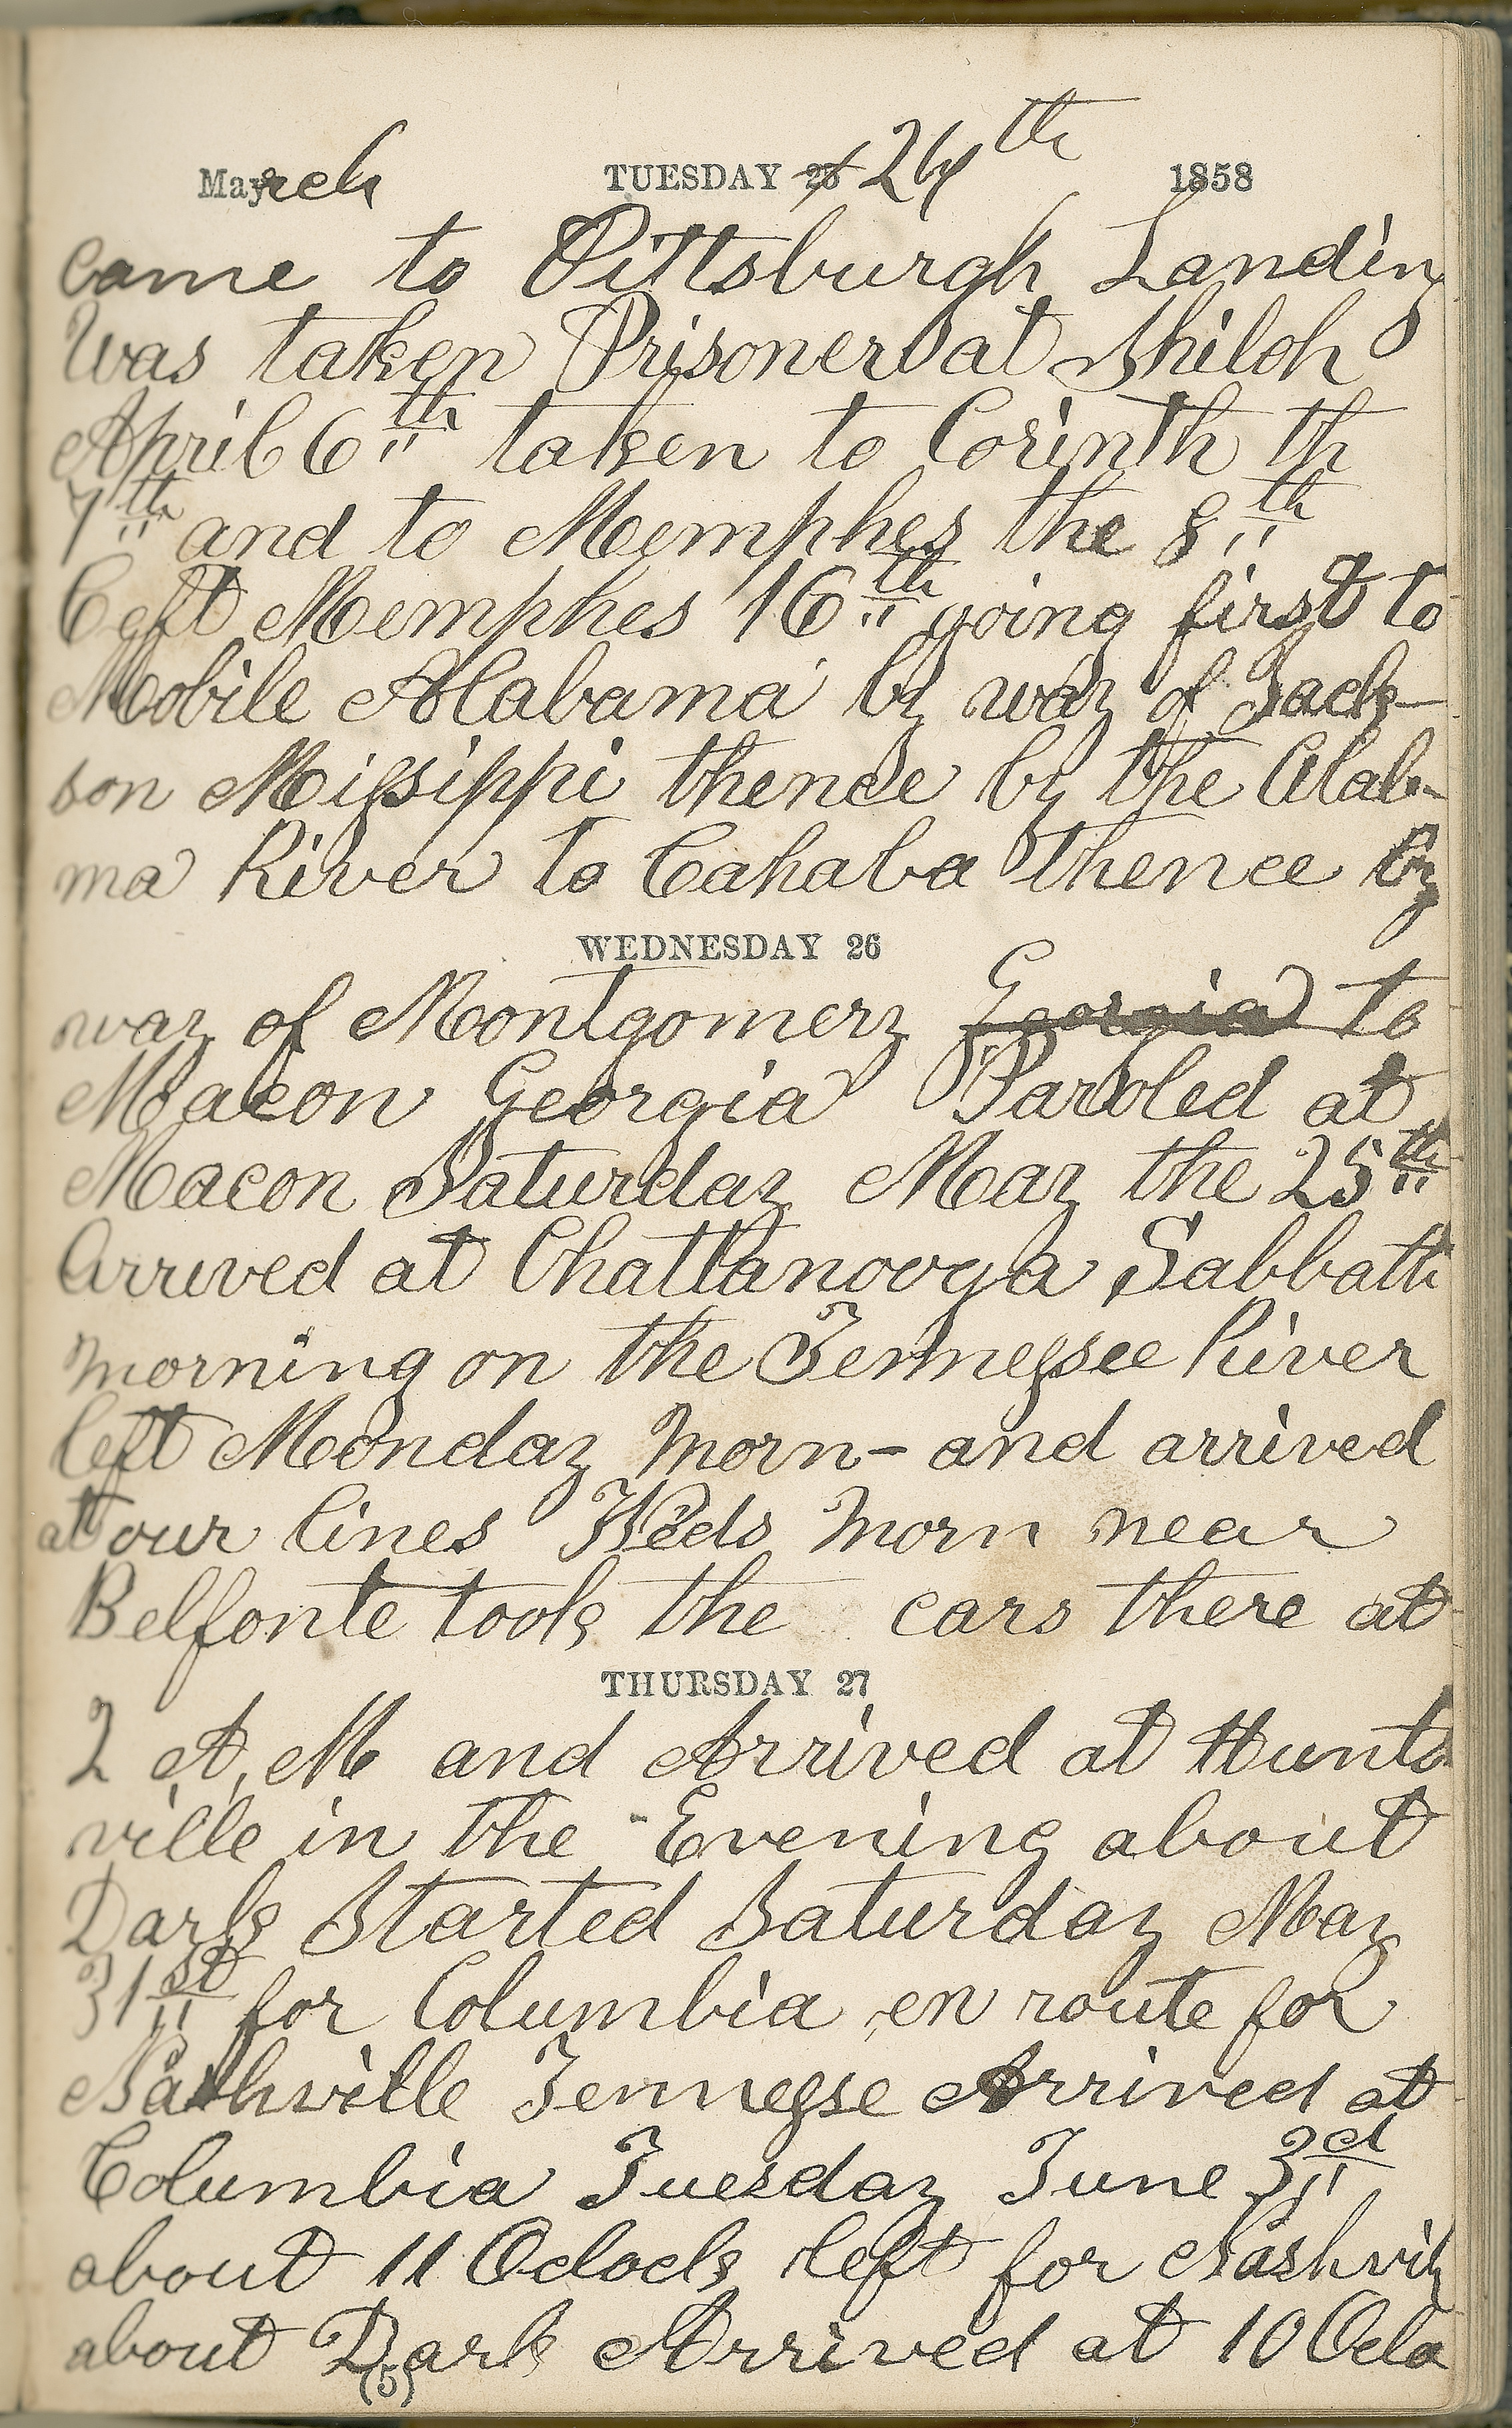 March TUESDAY 25 24th 1858
came to Pittsburgh Landing
Was taken Prisoner at Shiloh
April 6th taken to Corinth th
7th and to Memphes the 8th
Left Memphes 16th going first to
Mobile Alabama by way of Jack-
son Missippi thence by the Alab-
ma River to Cahaba thence by
WEDNESDAY 26
way of Montgomery Georgia to
Macon Georgia Paroled at
Macon Saturday May the 25th
Arrived at Chattanooga Sabbath
morning on the Tennessee River
left Monday Morn- and arrived
at our lines Weds Morn near
Belfonte took the cars there at
THURSDAY 27
2 A, M and Arrived at Hunts
ville in the Evening about
Dark Started Saturday May
31st for Columbia en route for
Nashville Tennesse Arrived at
Columbia Tuesday June 3d
about 11 Oclock left for Nashvil
about Dark Arrived at 10 Oclo
(5)